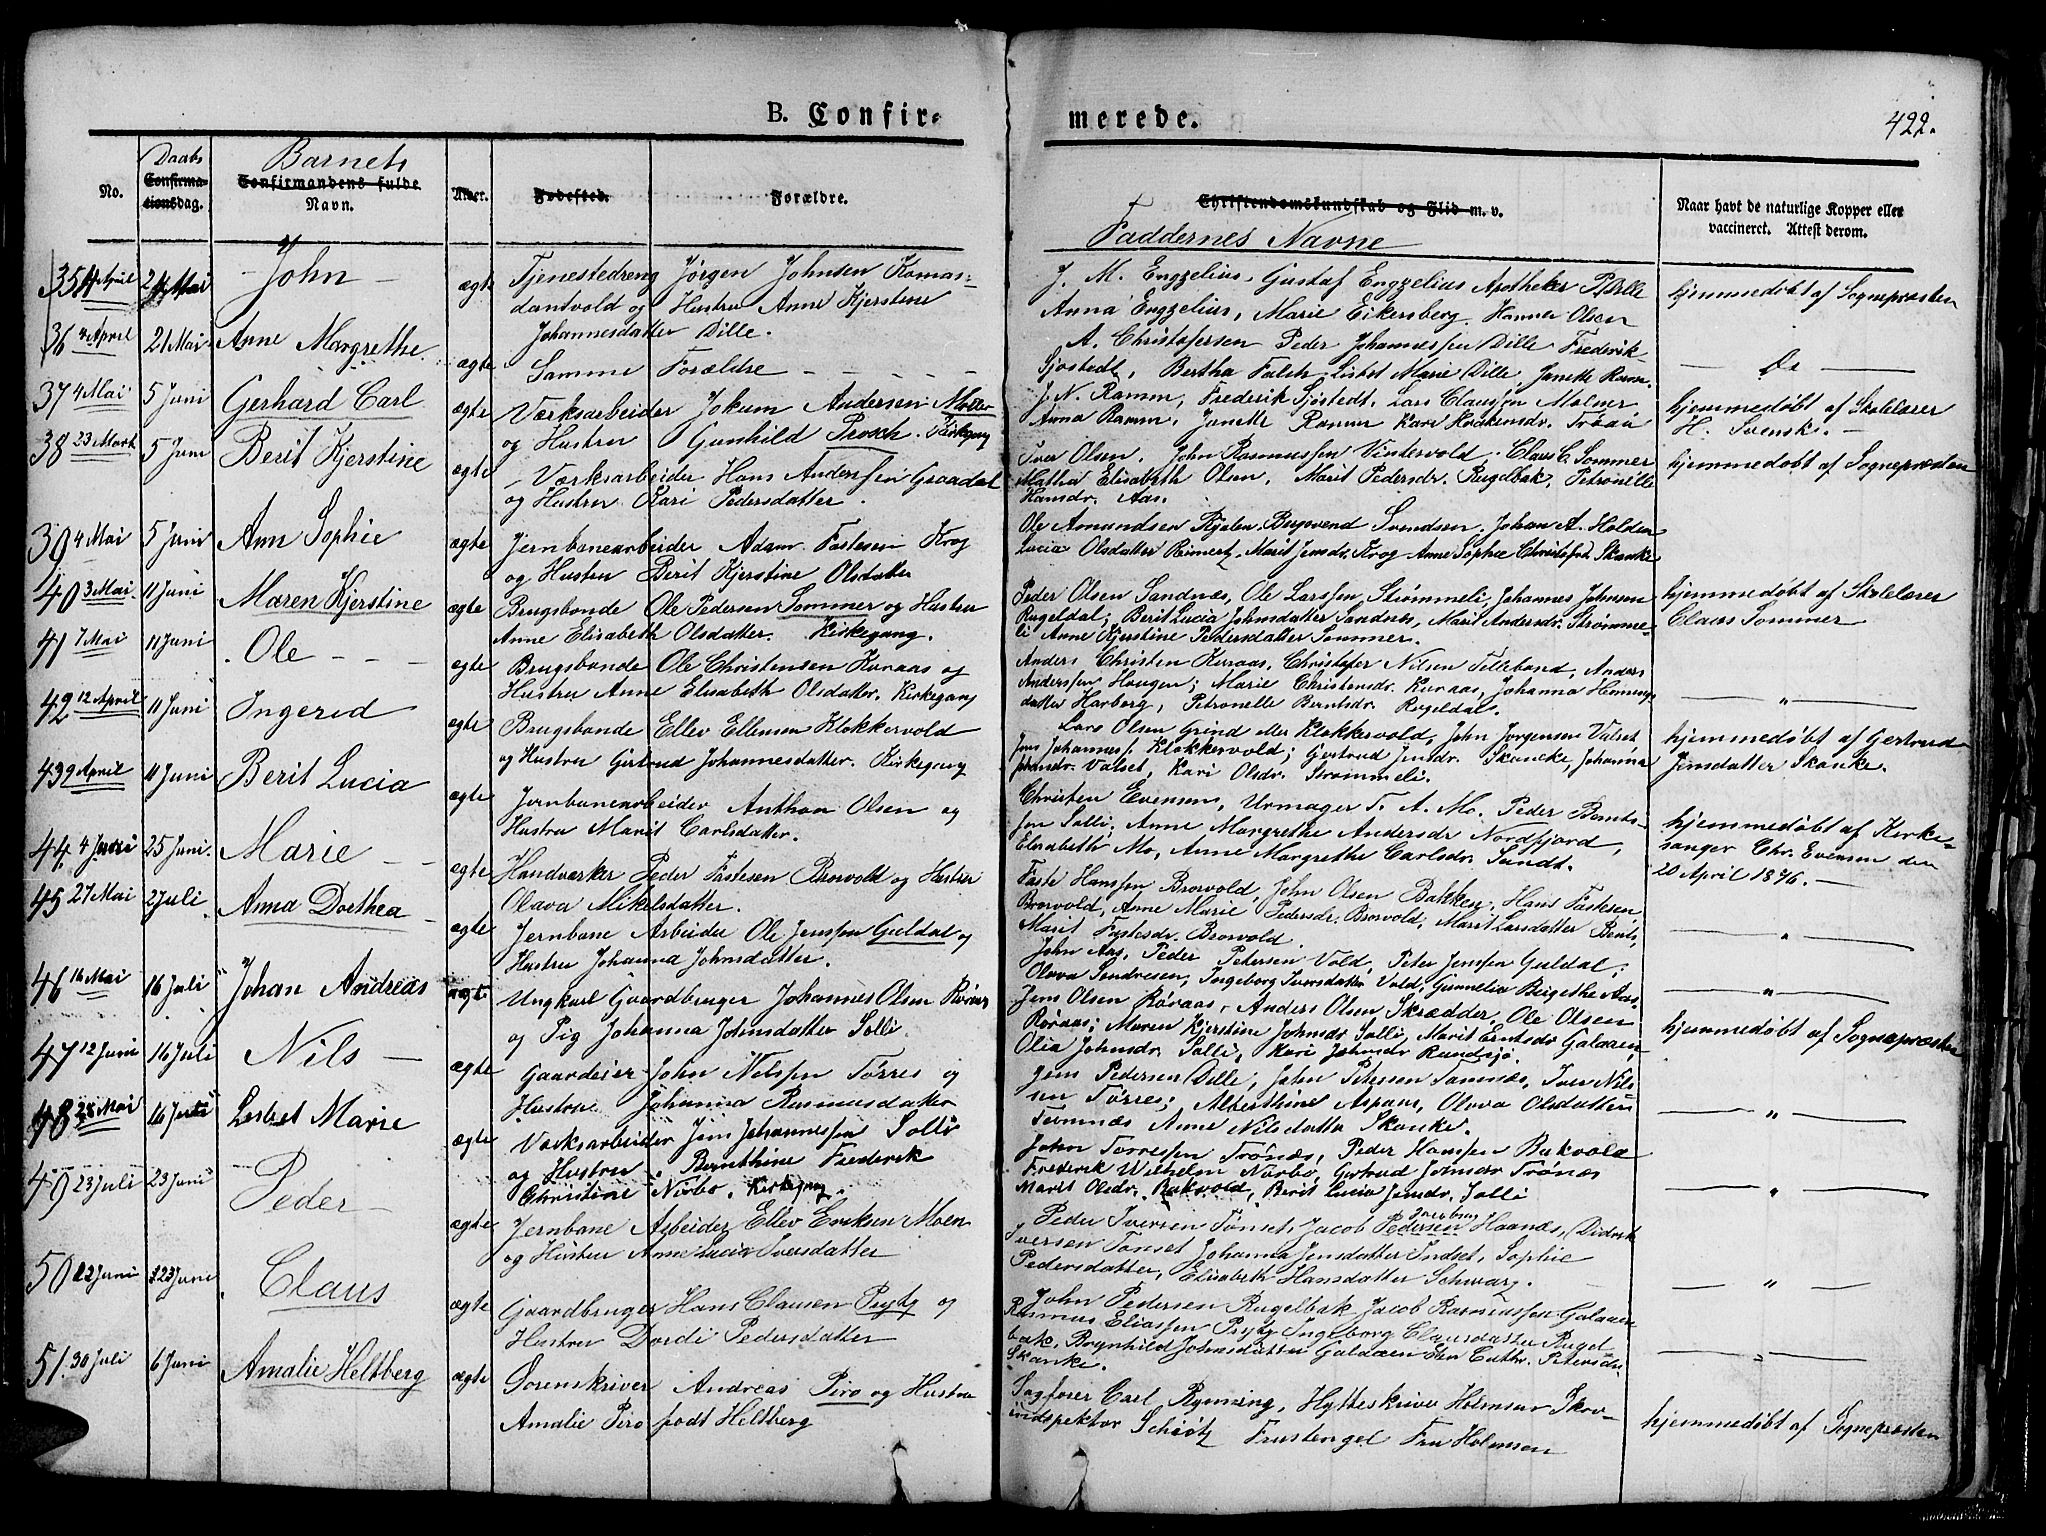 B. Confirmerede.
422.
No.
Daabs
Confirmationsdag.
Barnets
Confirmandens fulde Navn.
Alder.
Fødested.
Forældre.
Christendomskundskab og Flid m. v.
Faddernes Navne
Naar havt de naturlige Kopper eller vaccineret. Attest derom.
35 4 April 21 Mai John ægte Tjenestedreng Jørgen Johnsen Komandantvold og Hustru Anne Kjerstine Johannesdatter Dille.
J. M. Engzelius, Gustaf Engzelius Apotheker P. Dille
Anna Engzelius, Marie Eikersberg. Hanna Olsen
hjemmedøbt af Sognepræsten
36 4 April 21 Mai Anne Margrethe. ægte Samme Forældre
A. Christofersen Peder Johannessen Dille Frederik
Sjøstedt, Bertha Falch Lisbet Marie Dille, Janette Ramm.
Do
37 4 Mai 5 Juni Gerhard Carl ægte Værksarbeider Jokum Andersen Møller
og Hustru Gunhild Prosch. Kirkegang
J. N. Ramm, Frederik Sjøstedt, Lars Claussen Malmer
Anna Ramm, Janette Ramm Kari Haakensdr. Trøan
hjemmedøbt af Skolelærer
H. Svensk.
38 23 Mart 5 Juni Berit Kjerstine ægte Værksarbeider Hans Anderssen Graadal
og Hustru Kari Pedersdatter.
Iver Olsen. John Rasmussen Vintervold. Claus C. Sommer
Mathea Elisabeth Olsen, Marit Pedersdr. Rugelbak, Petronelle
Hansdr. Aas.
hjemmedøbt af Sognepræsten
39 4 Mai 5 Juni Ann Sophie ægte Jernbanearbeider Adam Fastesen Krog
og Hustru Berit Kjerstine Olsdatter
Ole Amundsen Svendsen, Johan A. Holden
Lucia Olsdatter Marit Jensdr. Krog Anne Sophie Christofd. Skanke
40 3 Mai 11 Juni Maren Kjerstine ægte Brugsbonde Ole Pedersen Sommer og Hustru
Anne Elisabeth Olsdatter. Kirkegang.
Peder Olsen Sandnæs, Ole Larssen Strømmeli, Johannes Johnsen
Rugeldal; Berit Lucia Johnsdatter Sandnæs, Marit Andersdr. Strømmeli
Anne Kjerstine Pedersdatter Sommer.
hjemmedøbt af Skolelærer
Claus Sommer
41 7 Mai 11 Juni Ole ægte Brugsbonde Ole Christensen Kuraas og
Hustru Anne Elisabeth Olsdatter. Kirkegang
Anders Christen Kuraas, Christofer Nilsen Anders
Anderssen Haugen; Marie Christensdr. Kuraas, Johanna Henningsdatter
Harborg, Petronelle Berntsdr. Rugeldal.
42 12 April 11 Juni Ingerid ægte Brugsbonde Ellev Ellensen Klokkervold
og Hustru Gjertrud Johannesdatter. Kirkegang
Lars Olsen Grind eller Klokkervold, John Jørgensen Valset
Jens Johannes. Klokkervold; Gjertrud Jensdr. Skancke, Johanna
Johansdr. Valset, Kari Olsdr. Strømmeli.
hjemmedøbt af Gjertrud
Jensdatter Skanke.
43 9 April 11 Juni Berit Lucia ægte Jernbanearbeider Anthon Olsen og
Hustru Marit Carlsdatter.
Christen Evensen, Urmager T. A. Mo. Peder Berntssen
Solli; Anne Margrethe Andersdr Nordfjord,
Elisabeth Mo, Anne Margrethe Carlsdr. Sundt.
hjemmedøbt af Kirkesanger
Chr. Evensen den
20 April 1876.
44 4 Juni 25 Juni. Marie ægte Handværker Peder Fastesen Brovold og Hustru
Olava Mikelsdatter.
Faste Hanssen Brovold, John Olsen Bakken, Hans Fastesen
Brovold, Anne Marie Pedersdr. Brovold, Marit Larsdatter Bents,
Marit Fastesdr. Brovold.
45 27 Mai 2 Juli Anna Dorthea ægte Jernbane Arbeider Ole Jenssen Guldal og
Hustru Johanna Johnsdatter.
John Aas, Peder Petersen Vold, Peter Jenssen Guldal;
Olava Sendresen, Ingeborg Iversdatter Vold, Gunnelia Birgethe Aas.
46 16 Mai 16 Juli Johan Andreas ægte Ungkarl Gaardbruger Johannes Olsen Røraas
og Pig Johanna Johnsdatter Solli.
Jens Olsen Røraas, Anders Olsen Skrædder, Ole Olsen
Røraas; Maren Kjerstine Johnsdr Solli, Marit Erntsdr Galaaen,
Olia Johnsdr. Solli, Kari Johnsdr Rundsjø.
hjemmedøbt af Sognepræsten
47 12 Juni 16 Juli Nils ægte Gaardeier John Nilssen Tørres og
Hustru Johanna Rasmusdatter
Jens Pedersen Dille, John Petersen Tamnæs, Iver Nilssen
Tørres; Alberthine Aspaas, Olava Olsdatter
Tamnæs Anne Nilsdatter Skanke.
48 28 Mai 16 Juli Lisbet Marie ægte Værksarbeider Jens Johannessen Solli
og Hustru Bernthine Frederik
Christine Nirbo. Kirkegang.
John Torressen Trønæs, Peder Hanssen Bukvold
Frederik Wilhelm Nirbo, Gjertrud Johnsdr Trønæs
Marit Olsdr. Bukvold, Berit Lucia Jensdr. Solli
49 23 Juli 23 Juni Peder ægte Jernbane Arbeider Ellev Eriksen Moen
og Hustru Anne Lucia Iversdatter
Peder Iversen Tønset, Jacob Pedersen Haanæs, Didrik
Iversen Tønset Johanna Jensdatter Indset, Sophie
Pedersdatter, Elisabeth Hansdatter Schwarz.
50 22 Juni 23 Juni Claus ægte Gaardbruger Hans Clausen Prytz og
Hustru Dordi Pedersdatter
John Pedersen Rugelbak Jacob Rasmussen Galaaen
Rasmus Eliassen Prytz Ingeborg Clausdatter Rugelbak,
Bronhild Johnsdatter Galaaen Cathr. Petersdr.
Skanke.
51. 30 Juli 6 Juni Amalie Heltberg ægte Sorenskriver Andreas Piro og Hustru
Amalie Piro født Heltberg
Sagfører Carl Rynning, Hytteskriver Holmsen Skovindspektør
Schiøtz Fru Stengel Fru Holmsen
hjemmedøbt af Sognepræsten